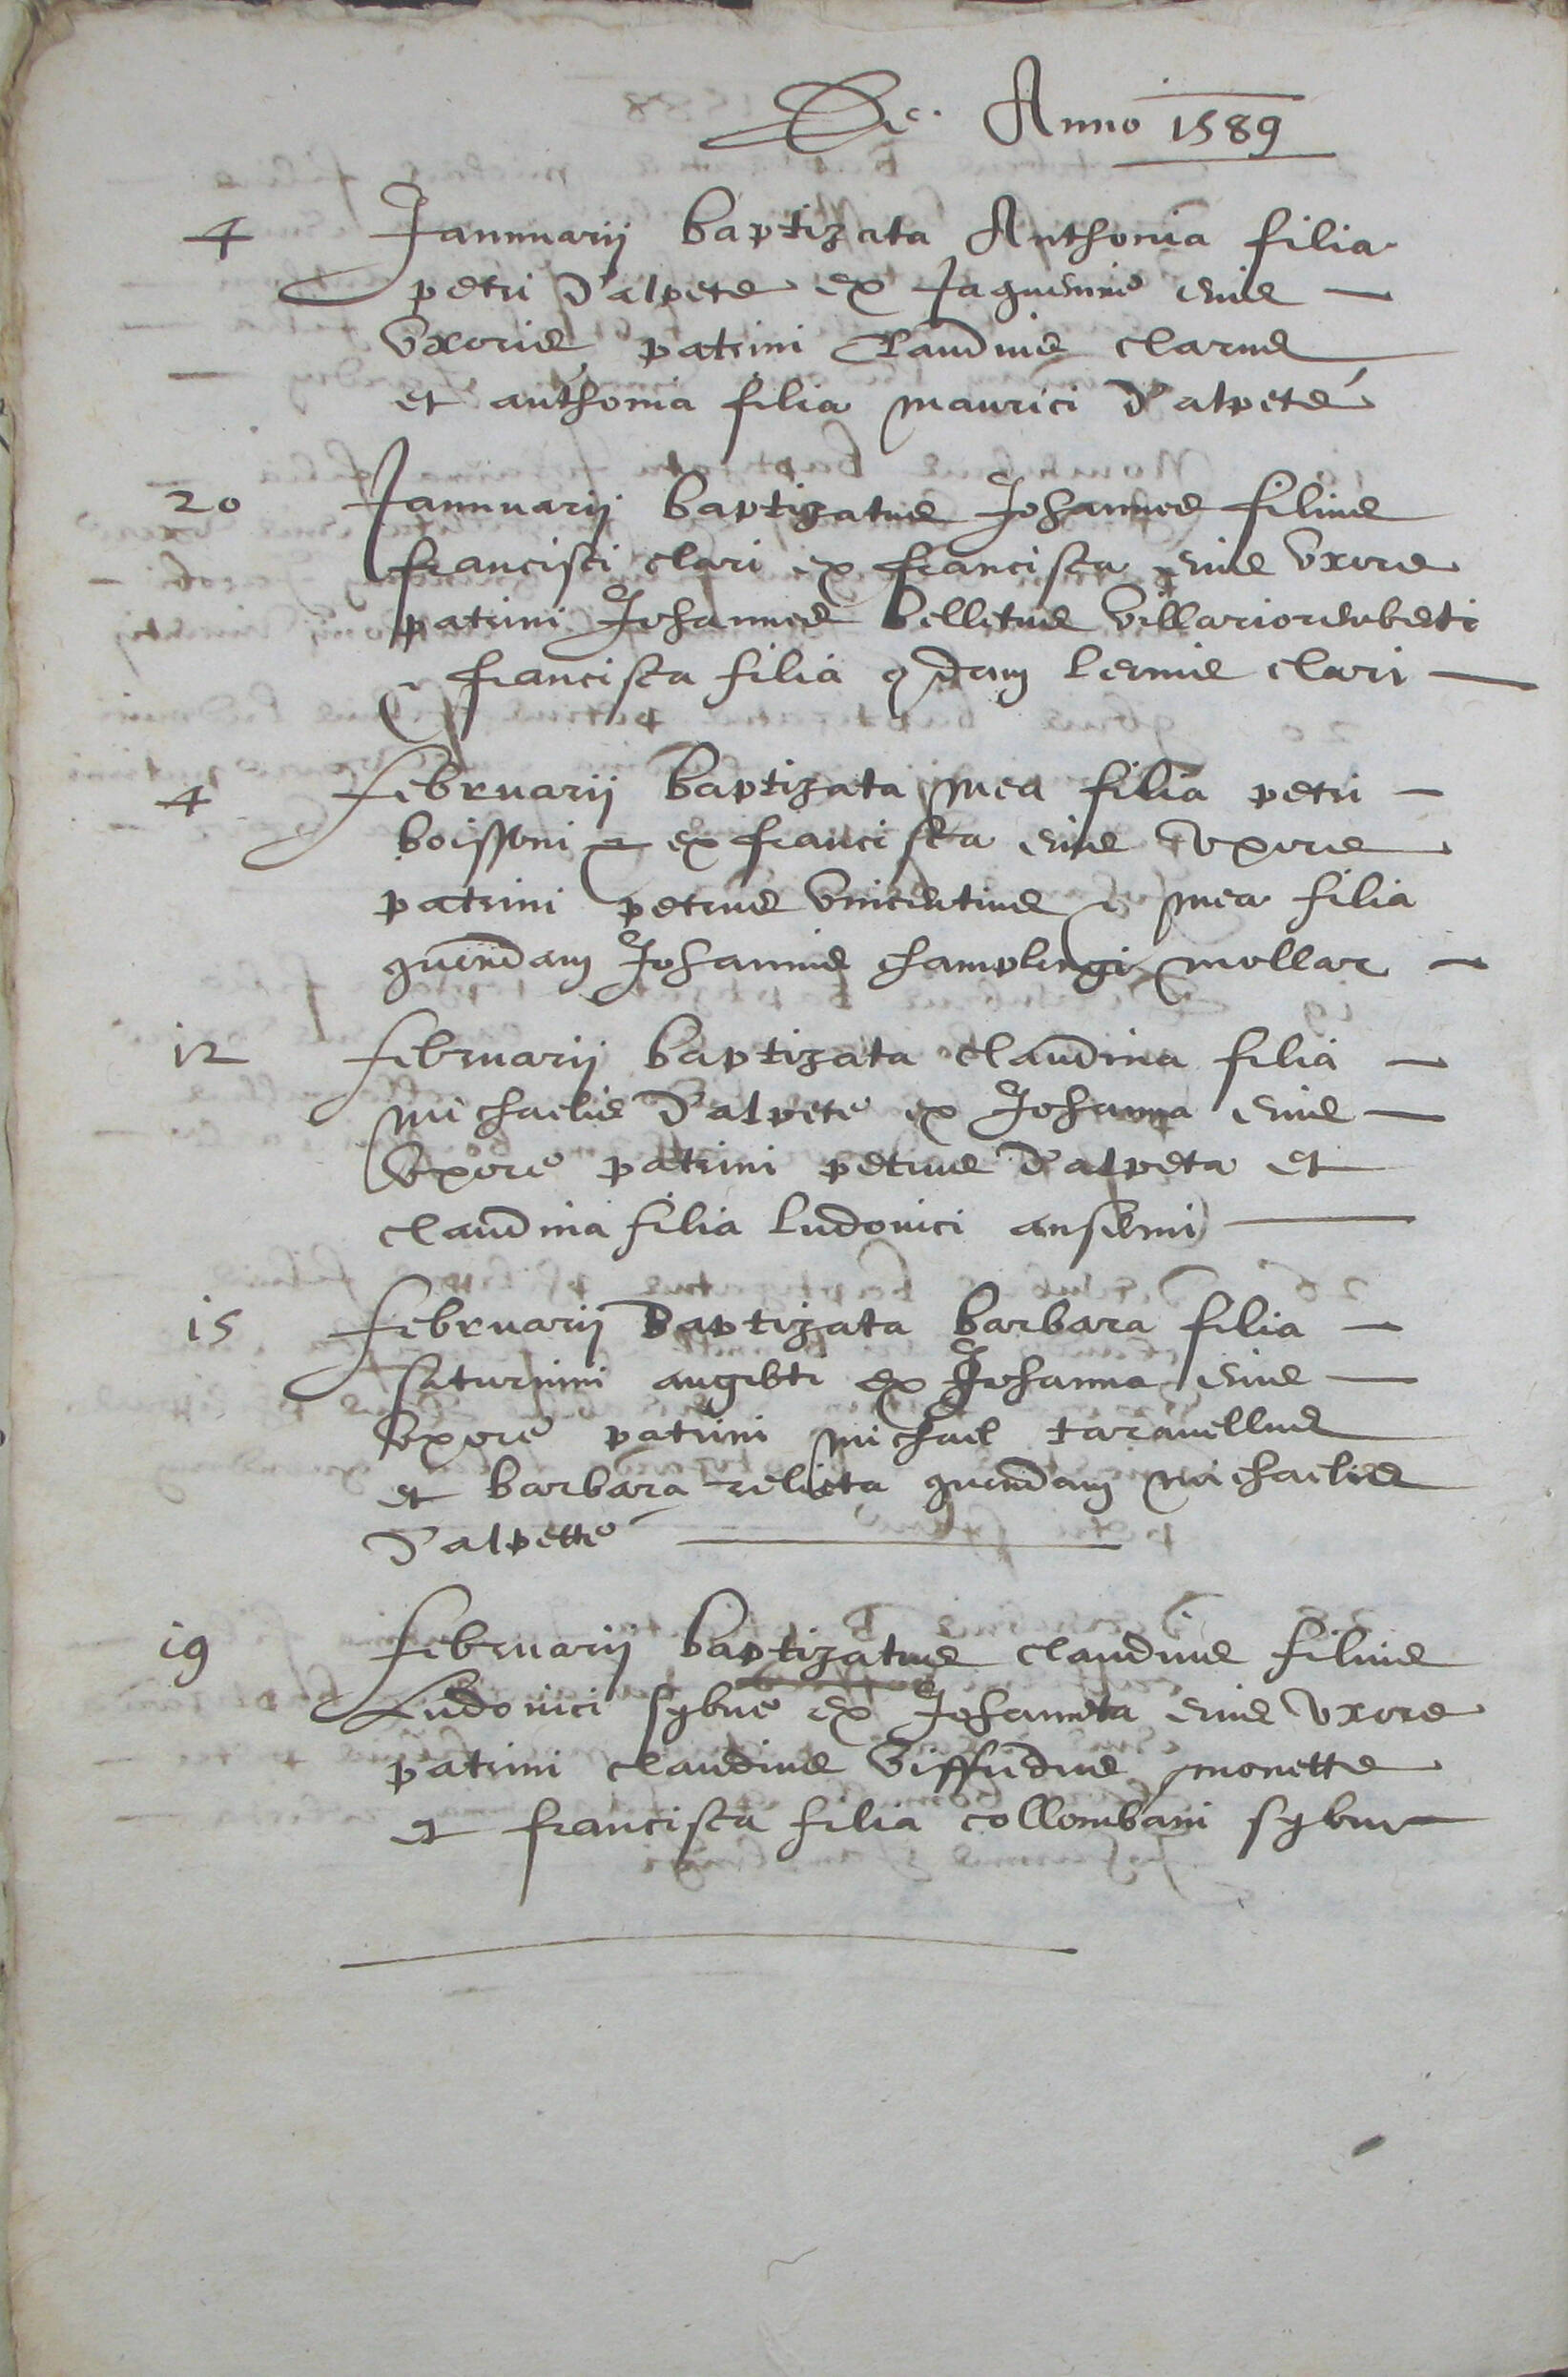 De Anno 1589
4 Jannuarij baptizata Anthonia filia
petri d'alpete ex Jaquemie eius
uxoris patrini Claudius clarus
et anthonia filia maurici d'alpete
20 Jannuarij baptizatus Johannes filius
francisci clari ex francisca eius uxore
patrini Johannes belletus
et francisca filia qdam clari
4 februarij baptizata mea filia petri
boissoni ex francisca eius uxore
patrini petrus vincentius et mea filia
quemdam Johannis champlengi mollar
12 februarij baptizata claudina filia
michaelis d'alpete ex Johanna eius
uxore patrini petrus d'alpeta et
claudina filia ludovici anselmi
15 februarij baptizata barbara filia
saturnini augerti ex Johanna eius
uxore patrini michael taravellus
et barbara relicta quemdam michaelis
d'alpette
19 februarij baptizatus claudius filius
Ludovici sybue ex Johanneta eius uxore
patrini claudius viffredus monette
et francisca filia collombani sybue